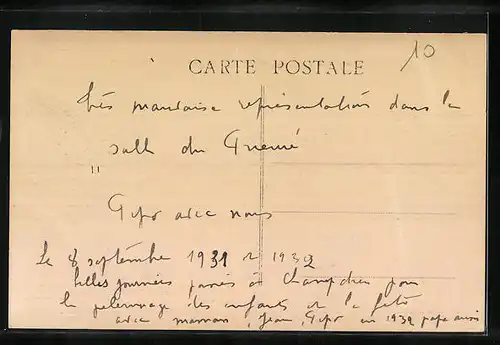 10
CARTE POSTALE
très mauvaise représentation dans la
salle du
avec nous
Le 8 septembre 1931 et 1932
belles journées passées à pour
le pelerinage des enfants et la fête
avec maman, Jean, en 1932 papa aussi